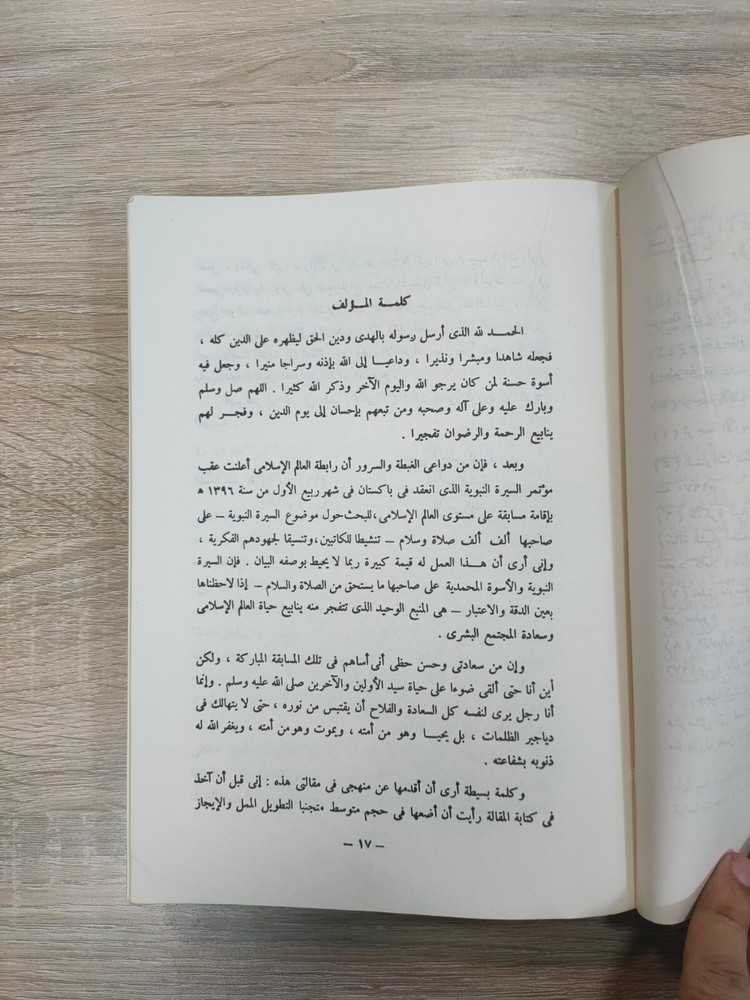 كلمة المؤلف
الحمد لله الذى أرسل رسوله بالهدى ودين الحق ليظهره على الدين كله ،
فجعله شاهدا ومبشرا ونذيرا ، وداعيا إلى الله بإذنه وسراجا منيرا ، وجعل فيه
أسوة حسنة لمن كان يرجو الله واليوم الآخر وذكر الله كثيرا . اللهم صل وسلم
وبارك عليه وعلى آله وصحبه ومن تبعهم بإحسان إلى يوم الدين ، وفجر لهم
ينابيع الرحمة والرضوان تفجيرا .
وبعد ، فإن من دواعى الغبطة والسرور أن رابطة العالم الإسلامى أعلنت عقب
موتتمر السيرة النبوية الذى انعقد فى باكستان فى شهر ربيع الأول من سنة ١٣٩٦ ه
بإقامة مسابقة على مستوى العالم الإسلامى، للبحث حول موضوع السيرة النبوية – على
صاحبها ألف ألف صلاة وسلام – تنشيطا للكاتبين، وتنسيقا لجهودهم الفكرية ،
وإنى أرى أن هذا العمل له قيمة كبيرة ربما لا يحيط بوصفه البيان . فإن السيرة
النبوية والأسوة المحمدية على صاحبها ما يستحق من الصلاة والسلام – إذا لاحظناها
بعين الدقة والاعتبار – هى المنبع الوحيد الذى تتفجر منه ينابيع حياة العالم الإسلامى
وسعادة المجتمع البشرى .
وإن من سعادتى وحسن حظى أنى أساهم فى تلك المسابقة المباركة ، ولكن
أين أنا حتى ألقى ضوءا على حياة سيد الأولين والآخرين صلى الله عليه وسلم . وإنما
أنا رجل يرى لنفسه كل السعادة والفلاح أن يقتبس من نوره ، حتى لا يتهالك فى
دياجير الظلمات ، بل يحيا وهو من أمته ، ويموت وهو من أمته ، ويغفر الله له
ذنوبه بشفاعته .
وكلمة بسيطة أرى أن أقدمها عن منهجى فى مقالتى هذه : إنى قبل أن آخذ
فى كتابة المقالة رأيت أن أضعها فى حجم متوسط متجنبا التطويل الممل والإيجاز
– ١٧ –